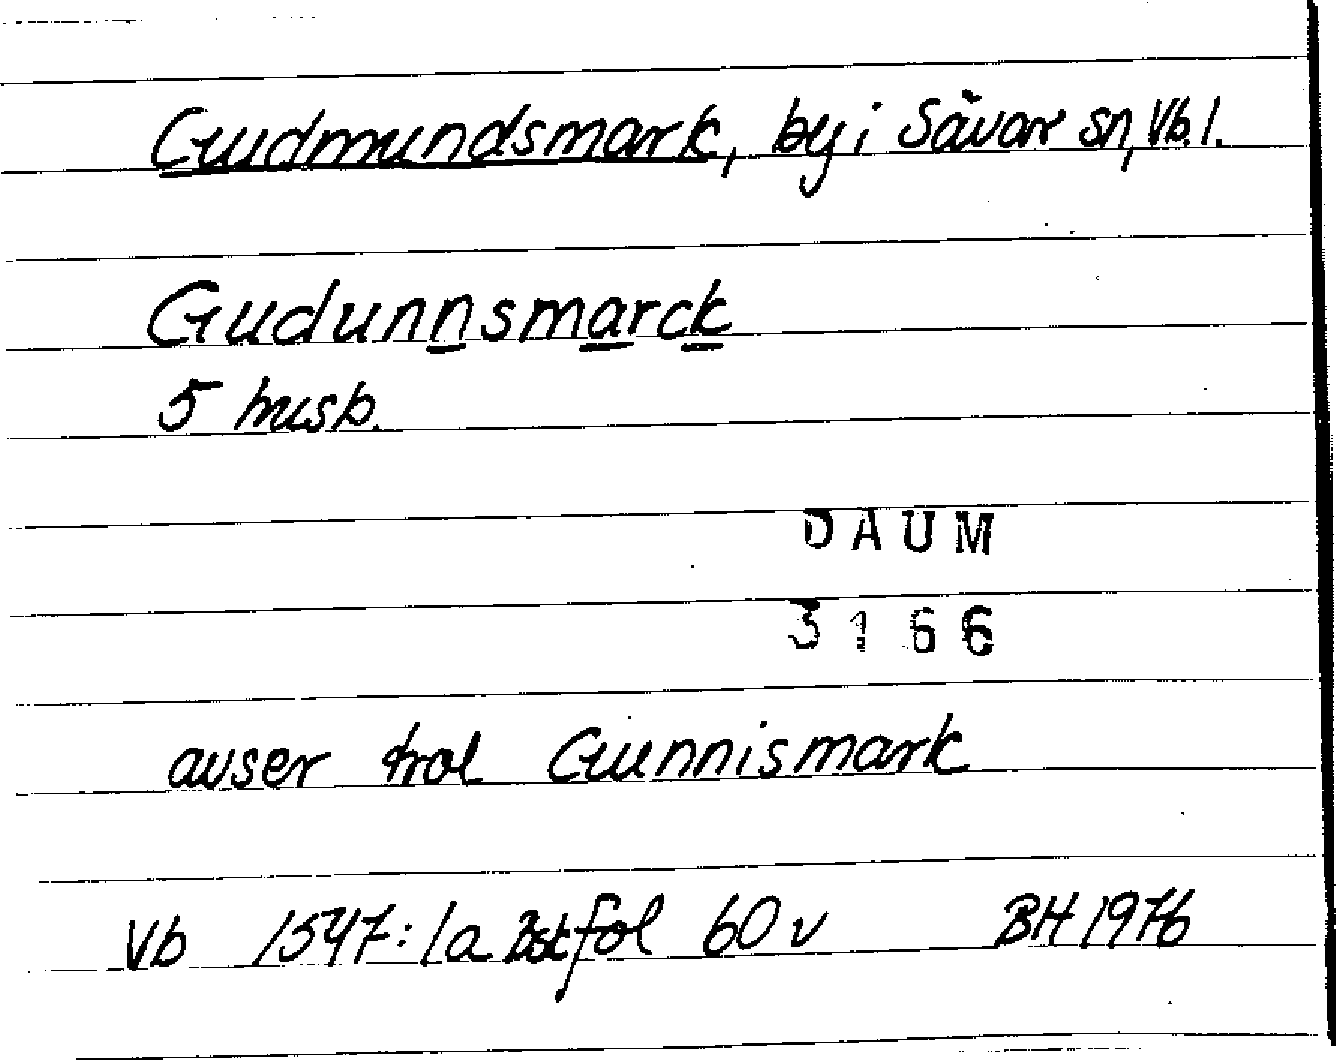 Gudmundsmark, by i Sävar sn, Vb. l.
Gudunnsmarck
5 husb.
DAUM
3166
avser trol Gunnismark
Vb 1547:1a fol 60 v BH 1976